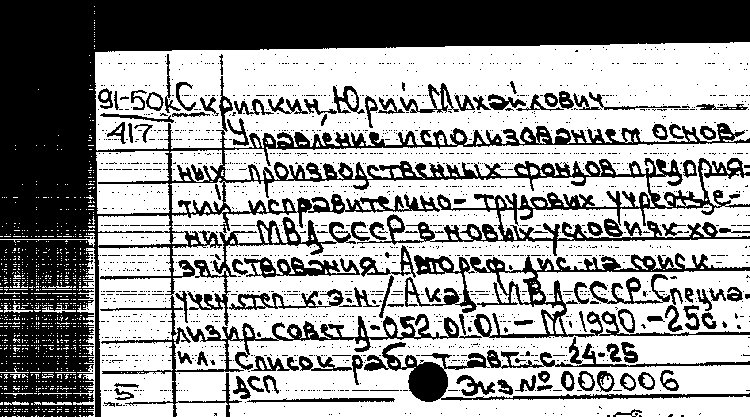 91-50к Скрипкин, Юрий Михайлович
417 Управление использованием основ-
ных производственных фондов предприя-
тий исправительно-трудовых учрежде-
ний МВД СССР в новых условиях хо-
зяйствования: Автореф. дис. на соиск.
учен. степ к.э.н. / Акад. МВД СССР. Специа-
лизир. совет Д-052.01.01. - М. 1990. - 25с. :
ил. Список работ авт.: с. 24-25
5 ДСП Экз № 000006